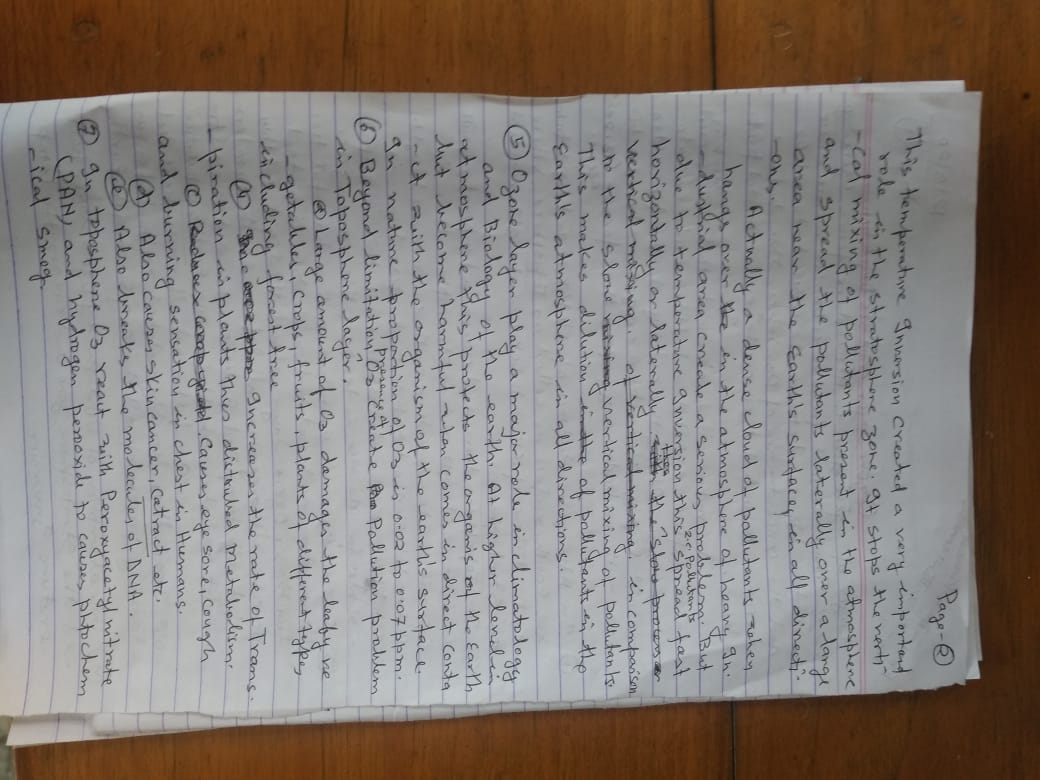 Page-②
This temperature Inversion created a very important
role in the stratosphere zone. It stops the verti-
-cal mixing of pollutants present in the atmosphere
and spread the pollutants laterally over a large
area near the Earth's surface, in all directi-
-ons.
Actually a dense cloud of pollutants when
hangs over the in the atmosphere of heavy In-
-dustrial area create a serious problem. But
due to temperature Inversion this spread fast
i.e Pollutants
horizontally or laterally than the slow process
vertical mixing. of vertical mixing. in comparison
to the slow mixing vertical mixing of pollutants.
This makes dilution in the of pollutants in the
Earth's atmosphere in all directions.
⑤ Ozone layer play a major role in climatology
and Biology of the earth. At higher level in
atmosphere this protects the organis of the Earth
but become harmful when comes in direct conta
-ct with the organism of the earth's surface.
In nature proportion of O3 is 0.02 to 0.07 ppm.
⑥ Beyond limitation, presence of O3 create Pollution problem
in Toposphere layer.
ⓐ Large amount of O3 damages the leaby ve
-getables, crops, fruits, plants of different types
including forest tree
ⓑ Increases the rate of Trans-
-piration in plants thus disturbed metabolism.
ⓒ Causes eye sore, cough
and burning sensation in chest in Humans.
ⓓ Also causes skin cancer, catract etc.
ⓔ Also breaks the molecules of DNA.
⑦ In toposphere O3 react with Peroxyacetyl nitrate
(PAN) and hydrogen peroxid to causes phtochem
-ical smog